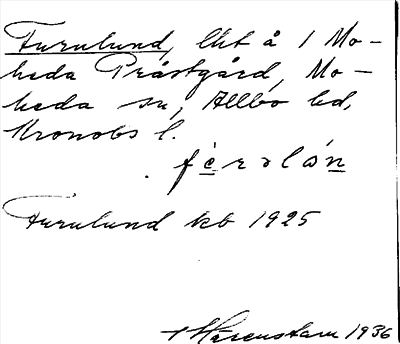 Furulund, lht å 1 Mo-
heda Prästgård, Mo-
heda sn, Allbo hd,
Kronobs l.
Furulund kb 1925
1936